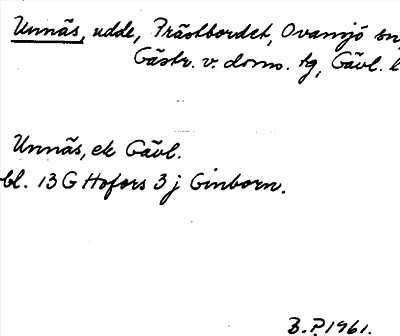 Unnäs, udde, Prästbordet, Ovansjö sn,
Gästr. v. doms. tg, Gävl. l
Unnäs, ek Gävl.
bl. 13 G Hofors 3 j Ginborn.
B.P. 1961.